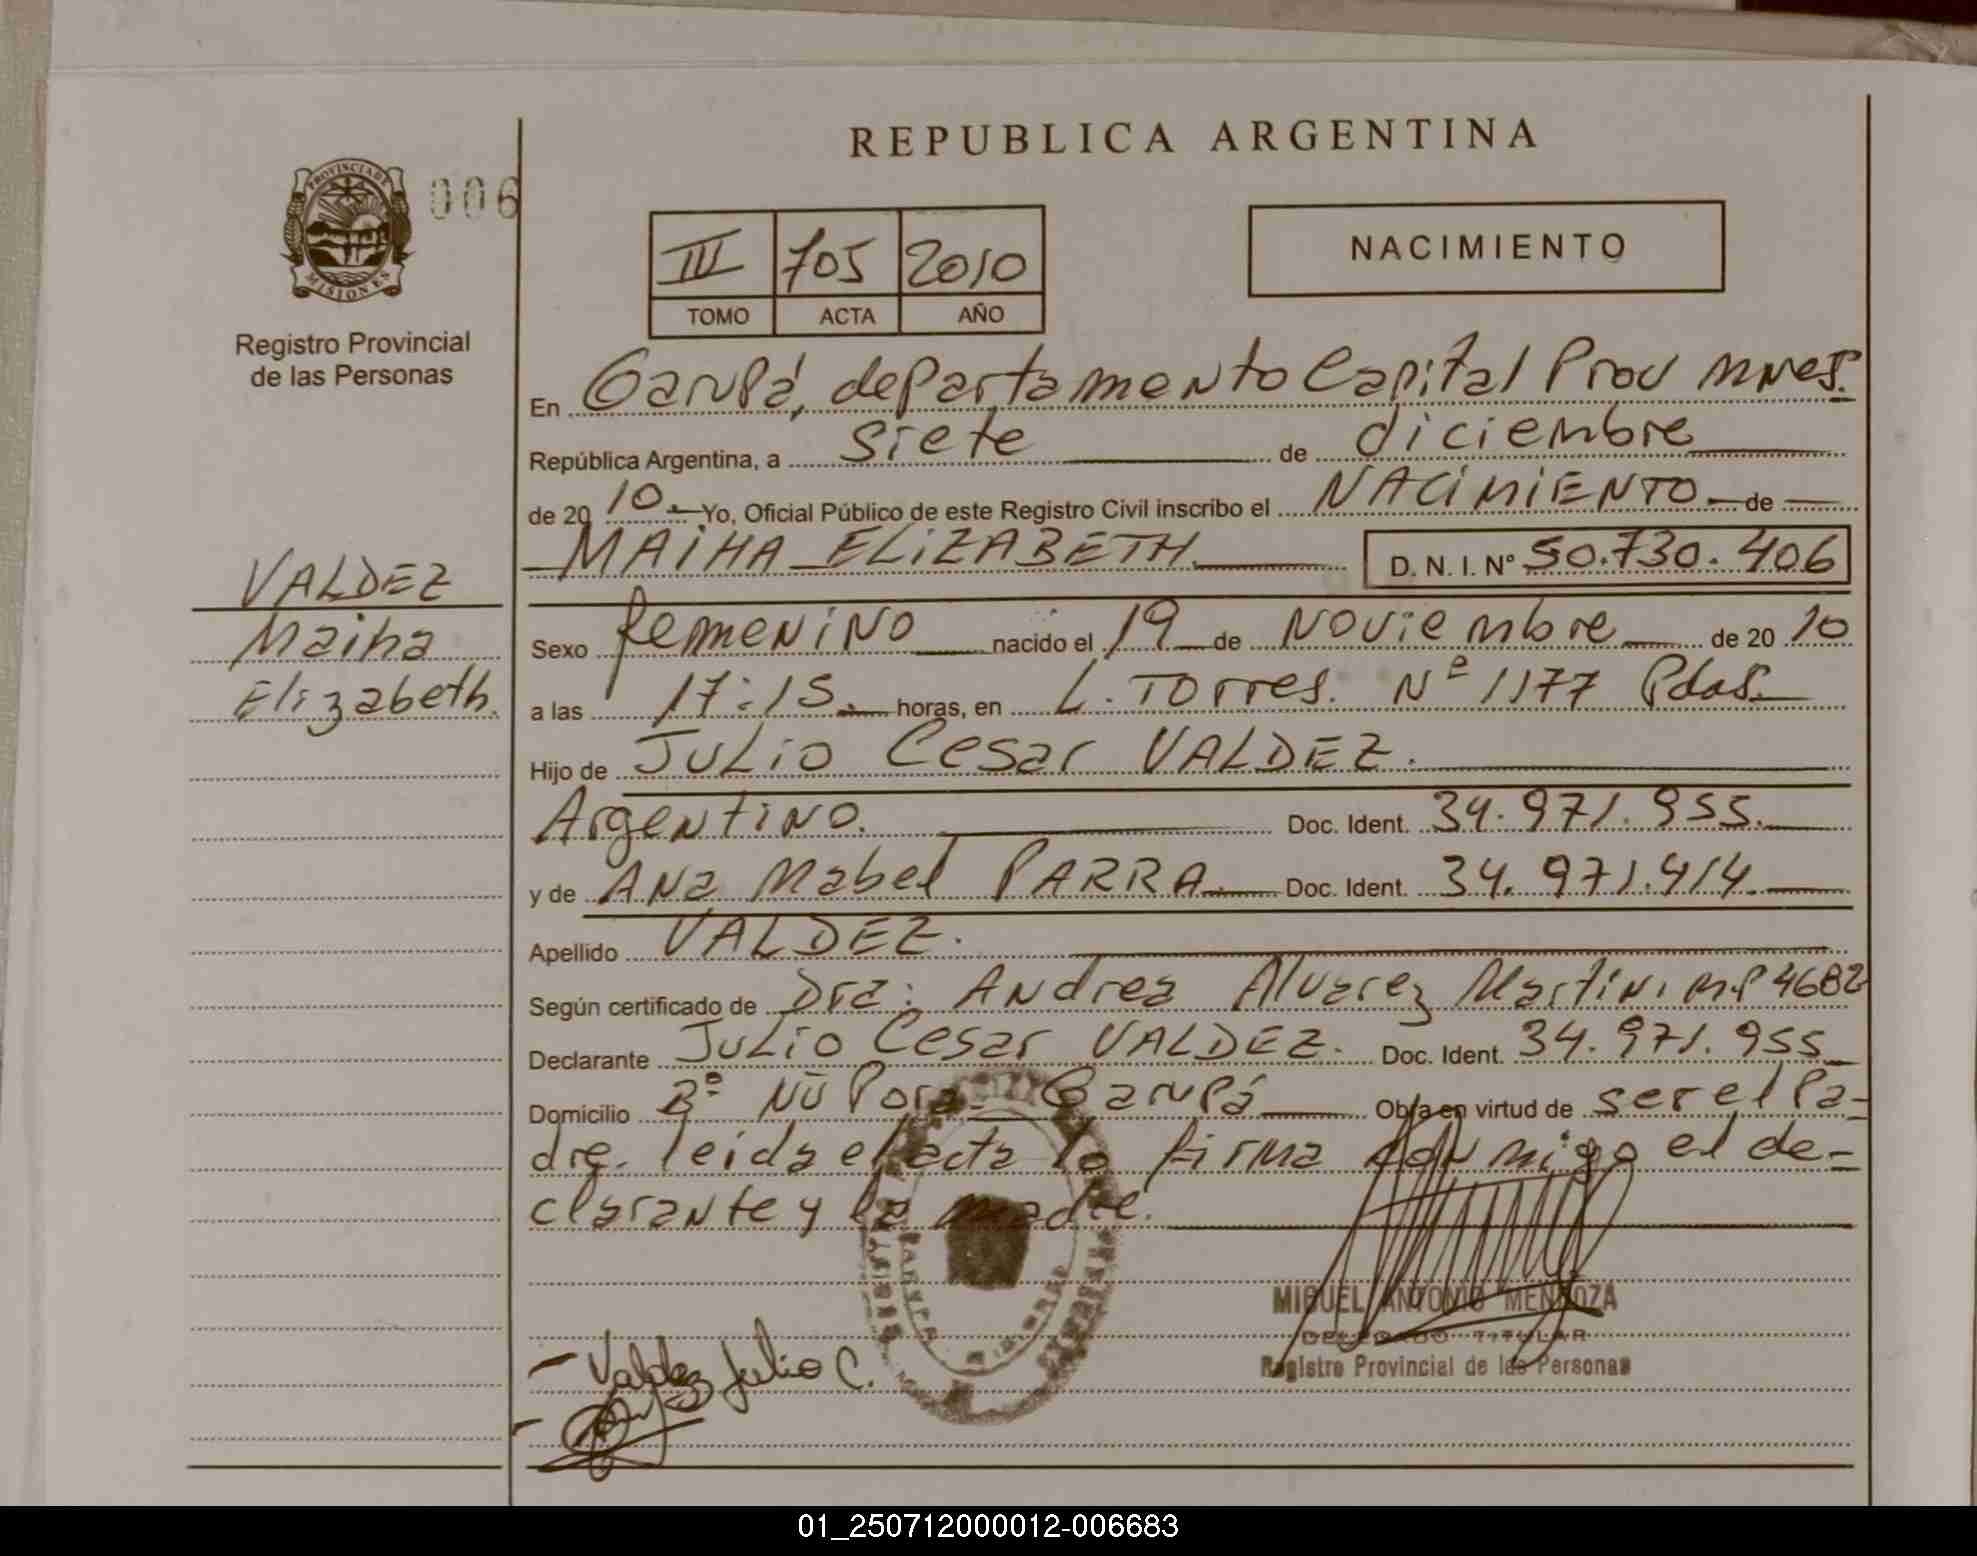 REPUBLICA ARGENTINA
PROVINCIA DE
MISIONES
006
Registro Provincial
de las Personas
III 705 2010
TOMO ACTA AÑO
NACIMIENTO
En Garupá, departamento Capital Prov mnes.
República Argentina, a siete de diciembre
de 2010. Yo, Oficial Público de este Registro Civil inscribo el NACIMIENTO de
MAIHA ELIZABETH D. N. I. Nº 50.730.406
VALDEZ
Maiha
Elizabeth.
Sexo femenino nacido el 19 de Noviembre de 2010
a las 17:15. horas, en L. Torres. Nº 1177 Pdas.
Hijo de JULIO Cesar VALDEZ.
Argentino. Doc. Ident. 34.971.955.
y de ANA Mabel PARRA Doc. Ident. 34.971.414.
Apellido VALDEZ.
Según certificado de Dra: Andrea Alvarez Martini M.P 4682
Declarante JULIO Cesar VALDEZ. Doc. Ident. 34.971.955
Domicilio Bº Ñu Pora. Garupá Obra en virtud de ser el Pa-
dre. leida el acta la firma conmigo el de-
clarante y la madre.
MIGUEL ANTONIO MENDOZA
DELEGADO TITULAR
Registro Provincial de las Personas
- Valdez Julio C.
01_250712000012-006683